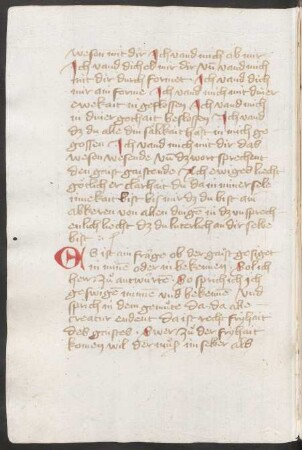 wesen mit dir Ich vand mich ob mir
Ich vand dich ob mir dir vn̄ vand mich
mit dir durch formet Ich vand dich
mir am forme Ich vand mich in diner
ewekait in geflossen Ich vand mich
in diner gothait beslossen Ich vand
dz du alle din salikait hast in mich ge
gossen Ich vand mich mit dir das
wesen wesende vn̄ dz wort sprechent
den gaist gaistende Ach ewiges liecht
götlicher clarhait du da in miner sele
inne bist mir dz du bist ain
abkeren von allen dinge in dz vnsprech
enlich liecht dz du luterlich an dir selbe
bist
ES ist ain fräge ob der gaist gesiget
in mine oder in bekennen Sol ich
hier zů antwürte So sprich ich
geswige mine vnd bekenne Vnd
sprich in dem gemüte da da alle
creatur endent da ist recht frihait
des gaistes Swer zů der frihait
komen wil der můs im selber als